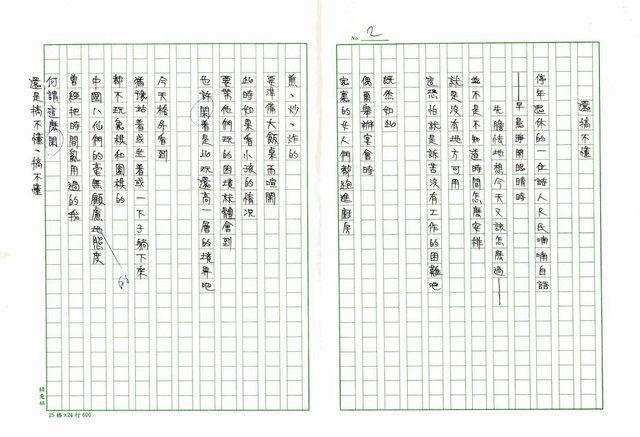 No. 2
還搞不懂
停年退休的一位詩人R氏喃喃自語
——早晨睜開眼睛時
先膽怯地想今天又該怎麼過——
並不是不知道時間怎麼安排
就是沒有地方可用
這恐怕就是訴苦沒有工作的困難吧
既然如此
偶爾舉辦宴會時
家裏的女人們都躲進廚房
煎、炒、炸的
要準備大飯桌而喧鬧
此時如果看小孩的情況
要幫他們玩的困境就體會到
也許閑着是比玩還高一層的境界吧
今天格外看到
猶豫站着或坐着或一下子躺下來
都不玩象棋和圍棋的
中國八仙們的毫無顧慮地態度
的
曾經把時間亂用過的我
何謂這麼閑
還是搞不懂、搞不懂
25格X24行600